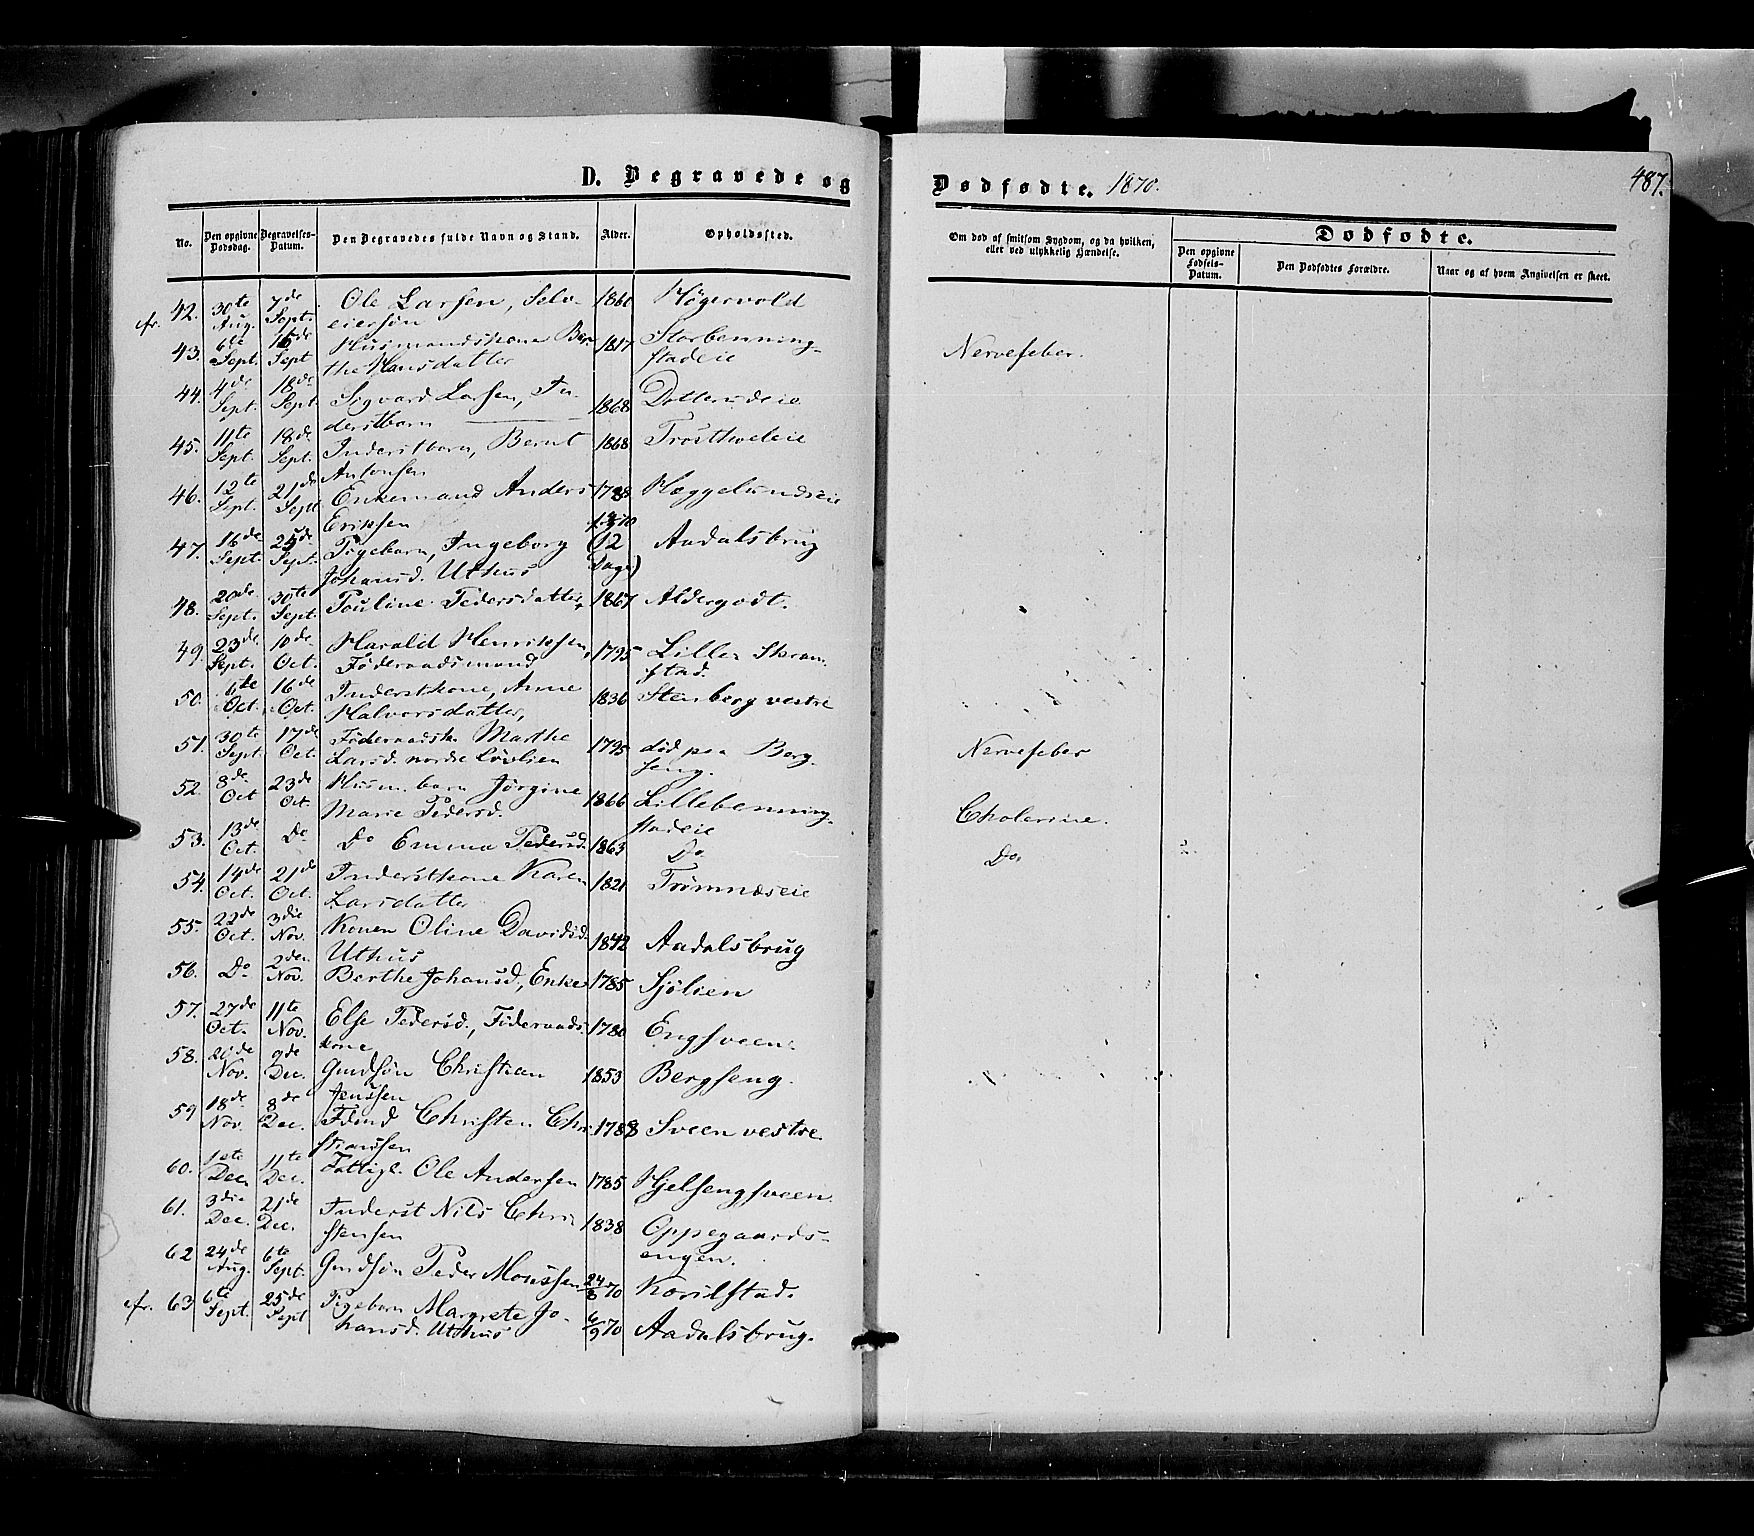 D. Begravede og
Dødfødte. 1870.
487.
No.
Den opgivne Dødsdag.
Begravelses-Datum.
Den Begravedes fulde Navn og Stand.
Alder.
Opholdssted.
Om død af smitsom Sygdom, og da hvilken, eller ved ulykkelig Hændelse.
Dødfødte.
Den opgivne Fødsels-Datum.
Den Dødfødtes Forældre.
Naar og af hvem Angivelsen er skeet.
42. 30te Aug. 7de Sept. Ole Larsen, Selv- 1860
eiersøn
cfr. 43. 6te Sept. Sept Husmandskone Ber- 1817 Storbenning- Nervefeber.
the Hansdatter stadeie
44. 4de Sept. 18de Sept. Sigvard Larsen, In- 1868 Dotterudeie
derstbarn
45. 11te Sept. 18de Sept. Inderstbarn, Bernt 1868
Antonsen
46. 12te Sept. 21de Sept Enkemand Anders Hæggelundseie
Eriksen
47. 16de Sept. 25de Sept. Pigebarn, Ingeborg (12 Aadalsbrug
Johansd. Uthus Dage)
48. 20de Sept. 30te Sept. Pouline Pedersdatter, 1867
49. 23de Sept. 10de Oct. Harald Henriksen, 1795 Lille Skram-
Föderaadsmand stad.
50. 6te Oct. 16de Oct. Inderstkone, Anne 1836 Stenberg vestre
Halvorsdatter,
51. 30te Sept. 17de Oct. Föderaadsk. Marthe 1795 död paa Berg- Nervefeber
Larsd. nordre Lövlien seng.
52. 8de Oct 23de Oct. Husm. barn Jörgine 1866 Lillebenning- Cholerine.
Marie Pedersd. stadeie
53. 13de Oct. Do Do Emma Pedersd. 1863 Do Do
54. 14de Oct. 21de Oct. Inderstkone Karen 1821 Trömnæseie
Larsdatter
55. 22de Oct. 3die Nov. Konen Oline Davidsd. 1842 Aadalsbrug
Uthus
56. Do 2den Nov. Berthe Johansd., Enke 1785 Sjölien
57. 27de Oct. 11te Nov. Else Pedersd., Föderaads- 1780 Engsveen.
kone
58. Nov. 9de Dec. Gmdsön Christian 1853 Bergseng.
Jenssen
59 18de Nov. 8de Dec. Christen Chri- Sveen vestre.
stianssen
60. 1ste Dec. 11te Dec. Fattigl. Ole Andersen 1785 Hjelsengsveen.
61. 3die Dec. 21de Dec. Inderst Nils Chri- 1838 Oppegaards-
stensen engen.
62 24de Aug. 6te Sept. Gmdsön Peder Monssen 24/8 70
cfr. 63 6te Sept. 25de Sept Pigebarn Margrete Jo- 6/9 70 Aadalsbrug.
hansd. Uthus